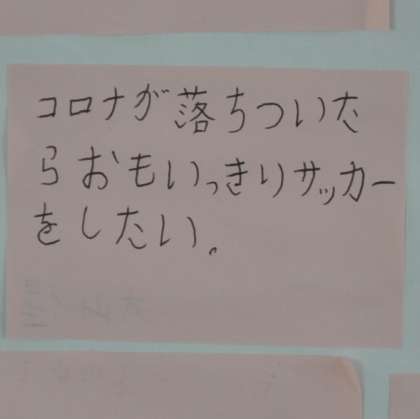 コロナが落ちついた
らおもいっきりサッカー
をしたい。